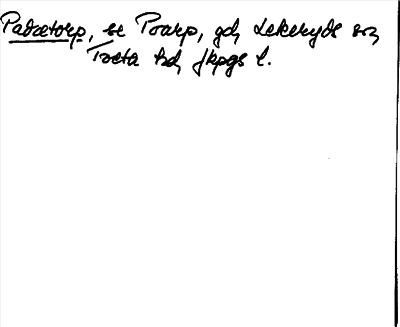 Padatorp, se Boarp, gd, Lekeryds sn,
Tveta hd, Jkpgs l.